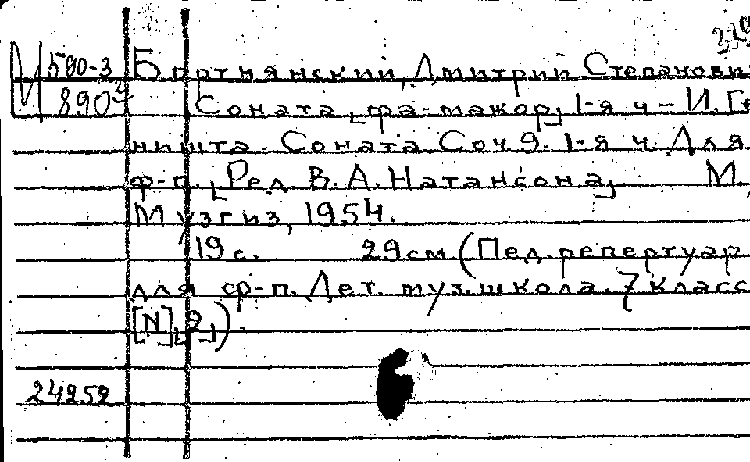 М 590-3 Бортнянский, Дмитрий Степанови
890 Соната [фа-мажор] 1-я ч - И. Г
ништа. Соната Соч 9. 1-я ч. Для
ф-п. [Ред. В. А. Натансона] М.,
Музгиз, 1954.
19 с. 29 см (Пед. репертуар
для ф-п. Дет. муз. школа. 7 класс
[N] [2]).
24252